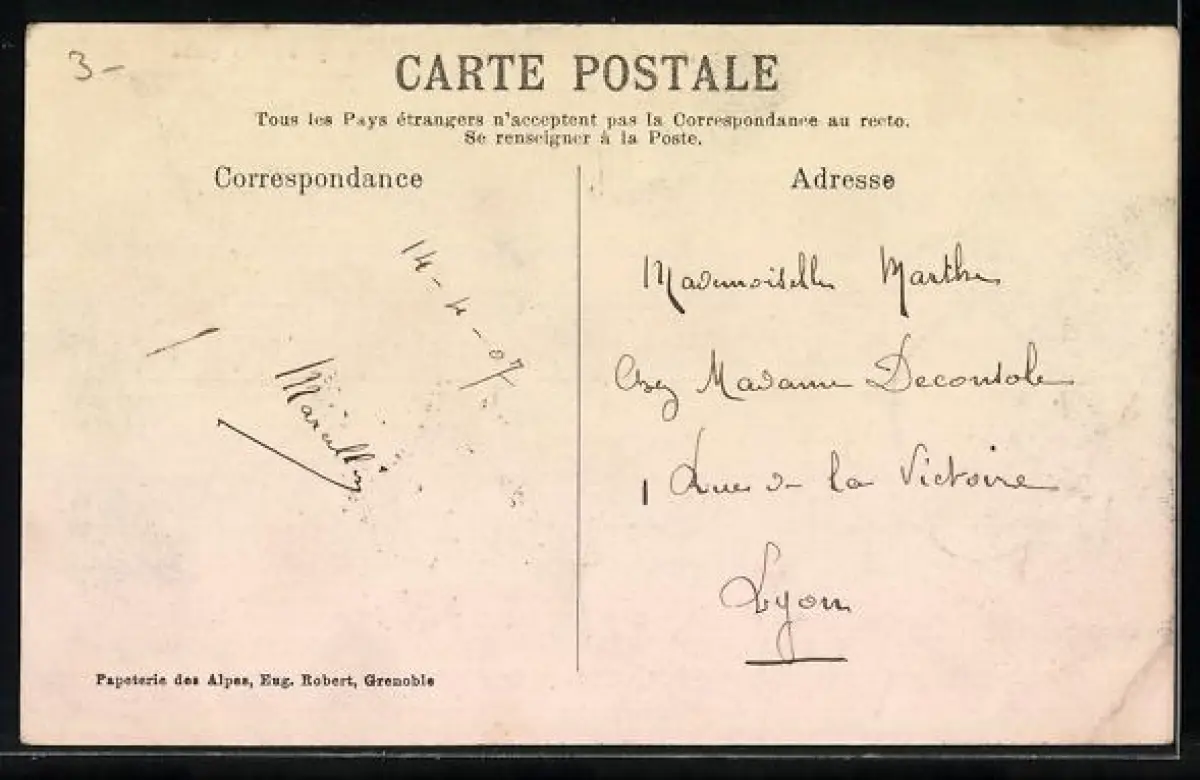 3-
CARTE POSTALE
Tous les Pays étrangers n'acceptent pas la Correspondance au recto.
Se renseigner à la Poste.
Correspondance
14-4-07
Marcellin
Papeterie des Alpes, Eug. Robert, Grenoble
Adresse
Mademoiselle Marthe
Chez Madame Deconsole
1 Rue de la Victoire
Lyon